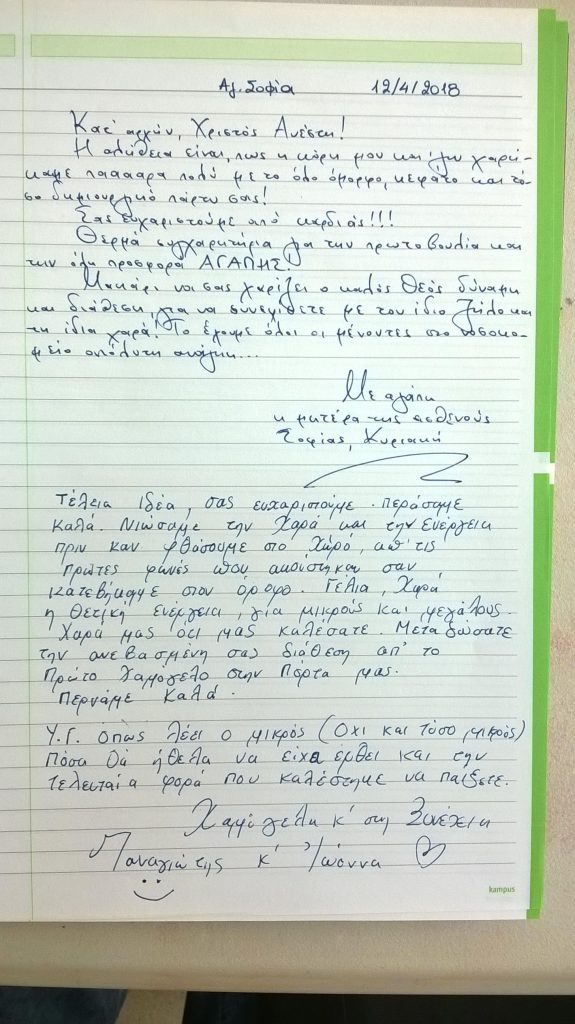 Αγ. Σοφία 12/4/2018
Κατ' αρχήν, Χριστός Ανέστη!
Η αλήθεια είναι, πως η κόρη μου και εγώ χαρή-
καμε πααααρα πολύ με το όλο όμορφο, κεφάτο και τό-
σο δημιουργικό πάρτυ σας!
Σας ευχαριστούμε από καρδιάς!!!
Θερμά συγχαρητήρια για την πρωτοβουλία και
την όλη προσφορά ΑΓΑΠΗΣ!
Μακάρι να σας χαρίζει ο καλός Θεός δύναμη
και διάθεση, για να συνεχίσετε με τον ίδιο ζήλο και
τη ίδια χαρά! Το έχουμε όλοι οι μένοντες στο νοσοκο-
μείο απόλυτη ανάγκη...
Με αγάπη
η μητέρα της ασθενούς
Σοφίας, Κυριακή
Τέλεια Ιδέα, σας ευχαριστούμε. Περάσαμε
Καλά. Νιώσαμε την Χαρά και την Ενέργεια
πριν καν φθάσουμε στο Χώρό, απ' τις
πρώτες φωνές που ακούστηκαν σαν
κατεβήκαμε στον όροφο. Γέλια, Χαρά
η Θετική ενέργεια, για μικρούς και μεγάλους.
Χαρά μας ότι μας καλέσατε. Μεταδώσατε
την ανεβασμένη σας διάθεση απ' το
Πρώτο Χαμόγελο στην Πόρτα μας.
Περνάμε Καλά.
Υ.Γ. όπως λέει ο μικρός (Οχι και Τόσο μικρός)
Πόσα Θά ήθελα να είχα έρθει και την
τελευταία φορά που καλέστηκε να παίξετε.
Χαμόγελα κ' στη Συνέχεια
Παναγιώτης κ' Ιωάννα
kampus